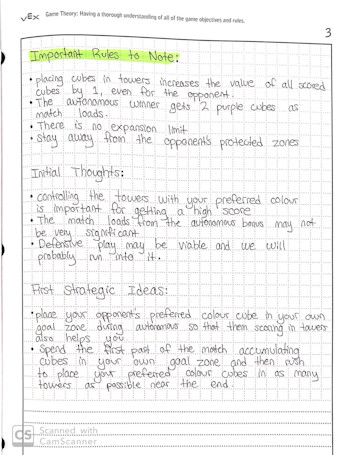 VEX Game Theory: Having a thorough understanding of all of the game objectives and rules.
3
Important Rules to Note:
• placing cubes in towers increases the value of all scored
cubes by 1, even for the opponent.
• The autonomous winner gets 2 purple cubes as
match loads.
• There is no expansion limit
• stay away from the opponent's protected zones
Initial Thoughts:
• controlling the towers with your preferred colour
is important for getting a high score
• The match loads from the autonomous bonus may not
be very significant
• Defensive play may be viable and we will
probably run into it.
First Strategic Ideas:
• place your opponent's preferred colour cube in your own
goal zone during autonomous so that them scoring in towers
also helps you
• Spend the first part of the match accumulating
cubes in your own goal zone and then rush
to place your preferred colour cubes in as many
towers as possible near the end.
CS Scanned with
CamScanner